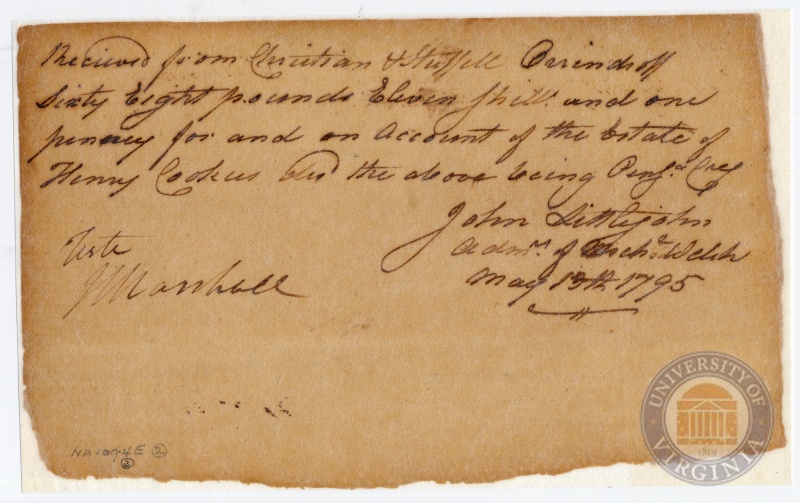 Recieved from Christian & Stuffell Orrindroff
Sixty Eight pounds Eleven Shill. and one
penney for and on Account of the Estate of
Henry Cookus the above being Pensa. Cucy
John Littlejohn
Admr. of Welch
May 13th 1795
Teste
J Marshall
NA1094E 2
2
UNIVERSITY OF VIRGINIA
1819